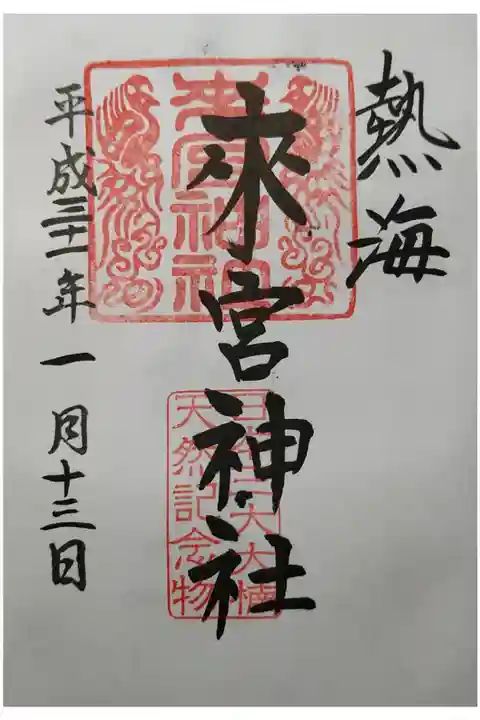 熱海
來宮神社
平成三十一年一月十三日
來宮神社
日本三大大楠
天然記念物